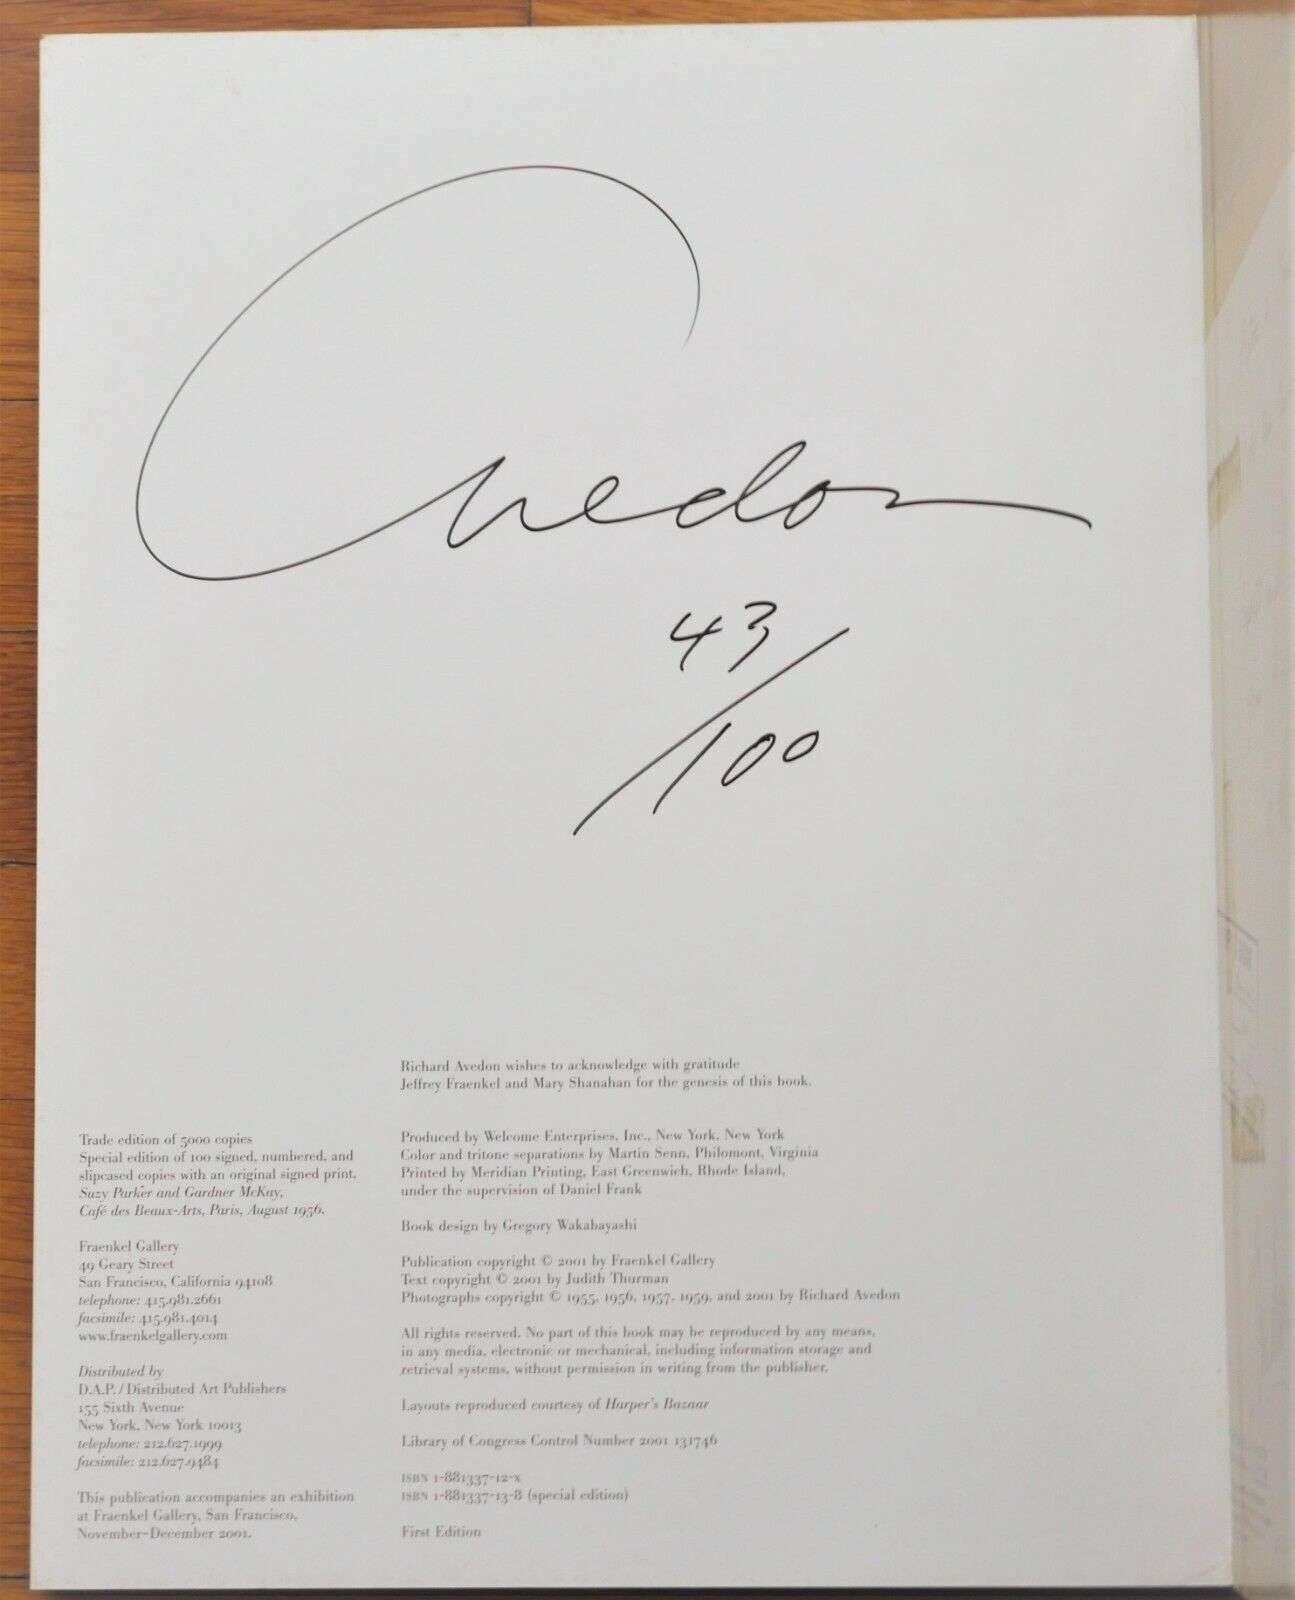 Avedon
43
/100
Richard Avedon wishes to acknowledge with gratitude
Jeffrey Fraenkel and Mary Shanahan for the genesis of this book.
Trade edition of 5000 copies
Special edition of 100 signed, numbered, and
slipcased copies with an original signed print,
Suzy Parker and Gardner McKay,
Café des Beaux-Arts, Paris, August 1956.
Fraenkel Gallery
49 Geary Street
San Francisco, California 94108
telephone: 415.981.2661
facsimile: 415.981.4014
www.fraenkelgallery.com
Distributed by
D.A.P. / Distributed Art Publishers
155 Sixth Avenue
New York, New York 10013
telephone: 212.627.1999
facsimile: 212.627.9484
This publication accompanies an exhibition
at Fraenkel Gallery, San Francisco,
November–December 2001.
Produced by Welcome Enterprises, Inc., New York, New York
Color and tritone separations by Martin Senn, Philomont, Virginia
Printed by Meridian Printing, East Greenwich, Rhode Island,
under the supervision of Daniel Frank
Book design by Gregory Wakabayashi
Publication copyright © 2001 by Fraenkel Gallery
Text copyright © 2001 by Judith Thurman
Photographs copyright © 1955, 1956, 1957, 1959, and 2001 by Richard Avedon
All rights reserved. No part of this book may be reproduced by any means,
in any media, electronic or mechanical, including information storage and
retrieval systems, without permission in writing from the publisher.
Layouts reproduced courtesy of Harper's Bazaar
Library of Congress Control Number 2001 131746
ISBN 1-881337-12-x
ISBN 1-881337-13-8 (special edition)
First Edition